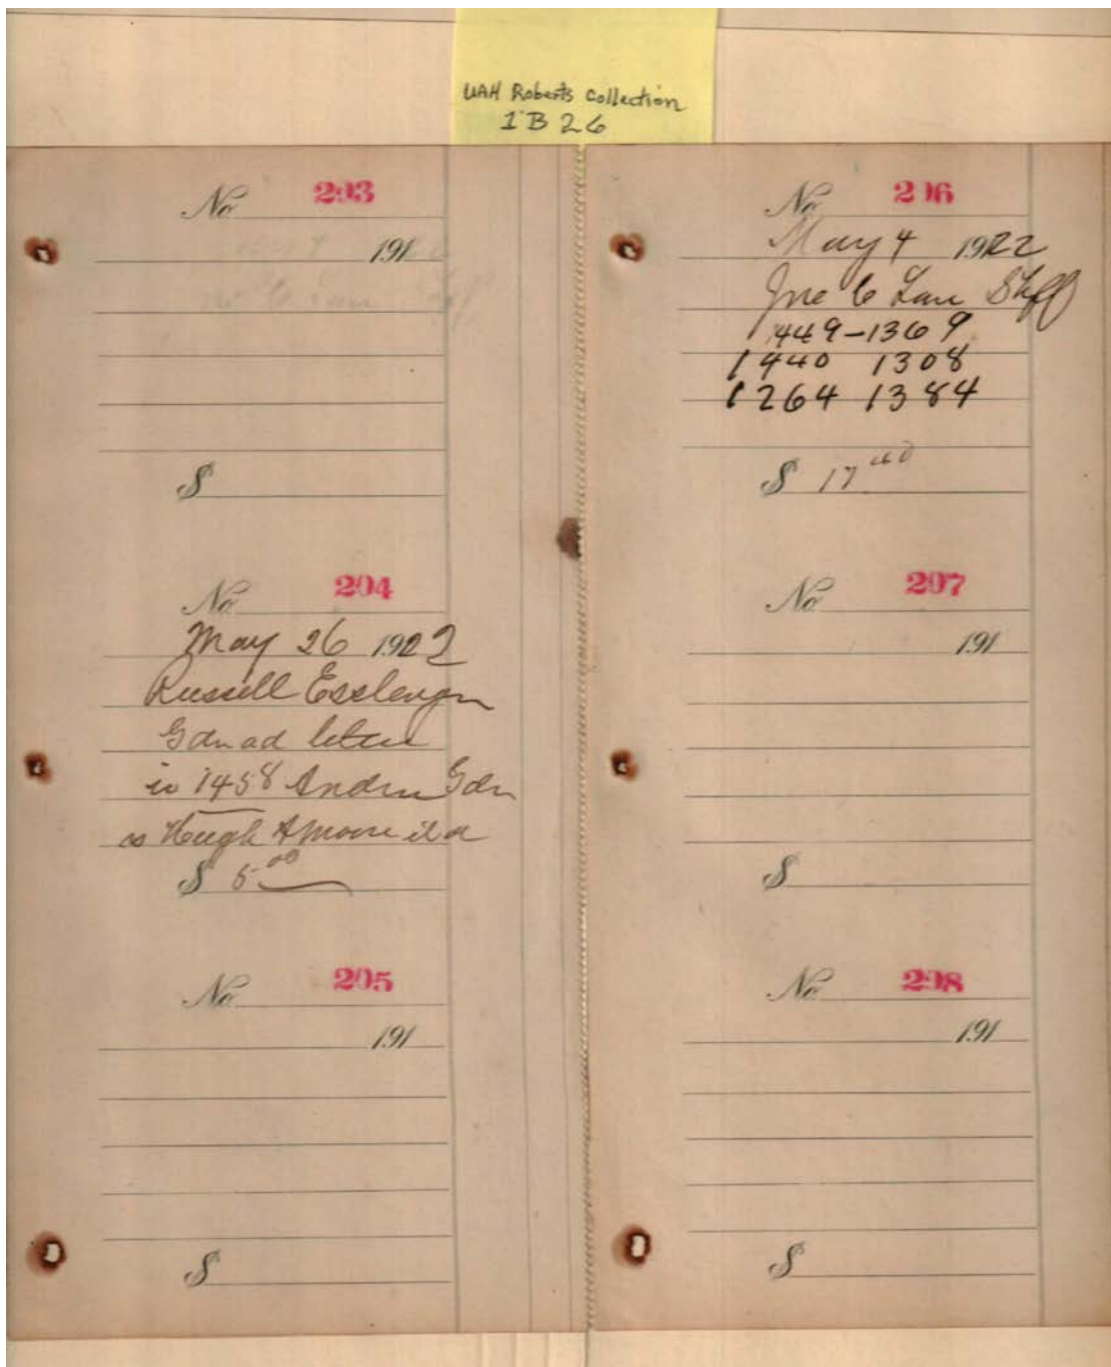 UAH Roberts Collection
1B26
No 203
191
$
No 204
May 26 1922
Russell Esslinger
Gdn ad litem
in 1458 Andrew Gdn
vs Hugh A Moore et al
$ 5.00
No 205
191
$
No 206
May 4 1922
Jno Shff
1449-1369
1440 1308
1264 1384
$ 17 40
No 207
191
$
No 208
191
$